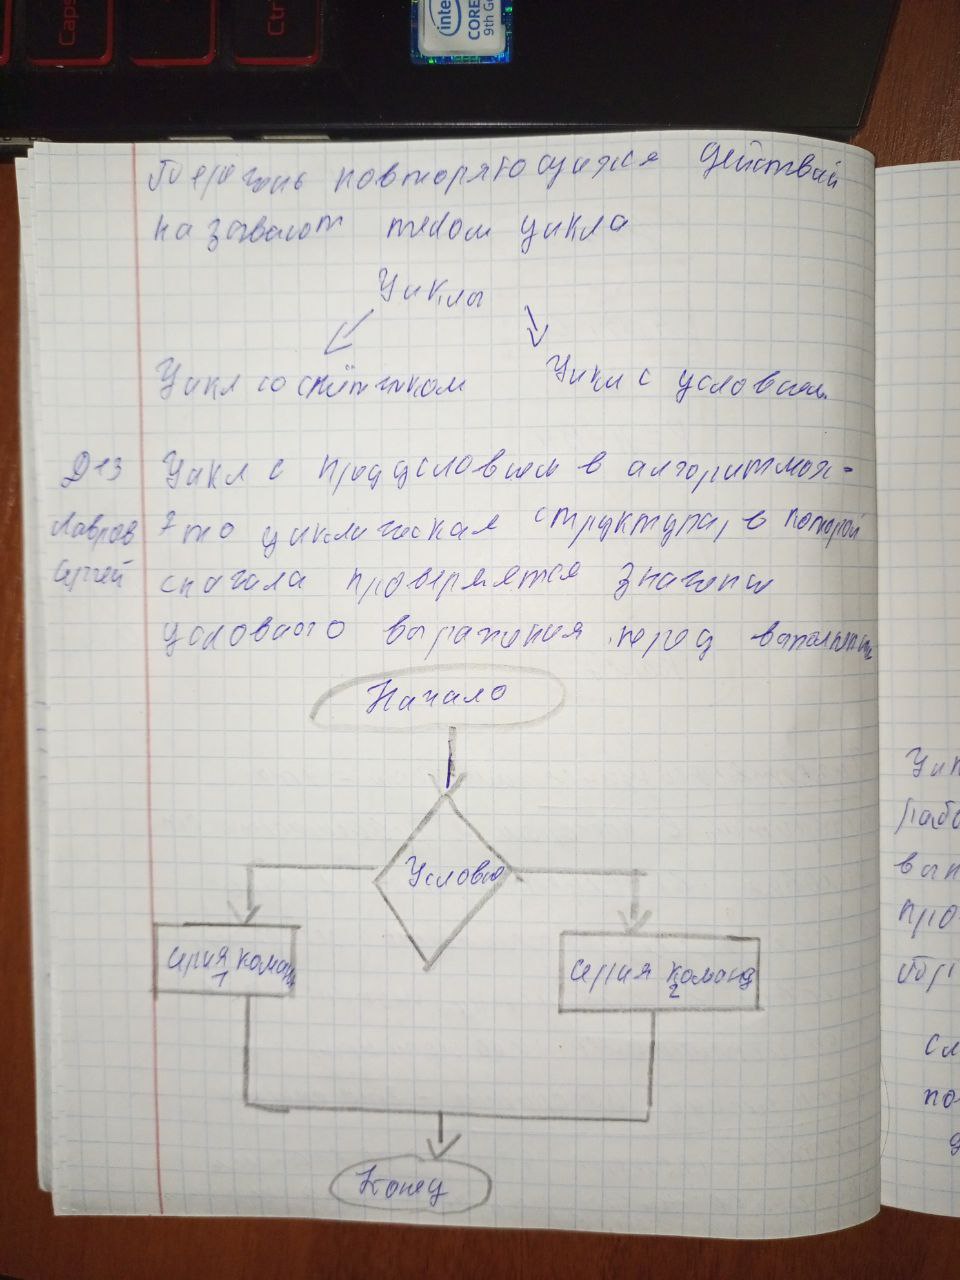 Caps
Ctr
inte
CORE
9th Ge
Перечень повторяющихся действий
называют телом цикла
Циклы
Цикл со счётчиком Цикл с условием
Д13 Цикл с предусловием в алгоритмах-
Лавров это циклическая структура, в которой
Сергей сначала проверяется значение
условного выражения перед
Начало
Условие
серия команд
1
серия команд
2
Конец
Цик
рабо
вып
про
сл
по